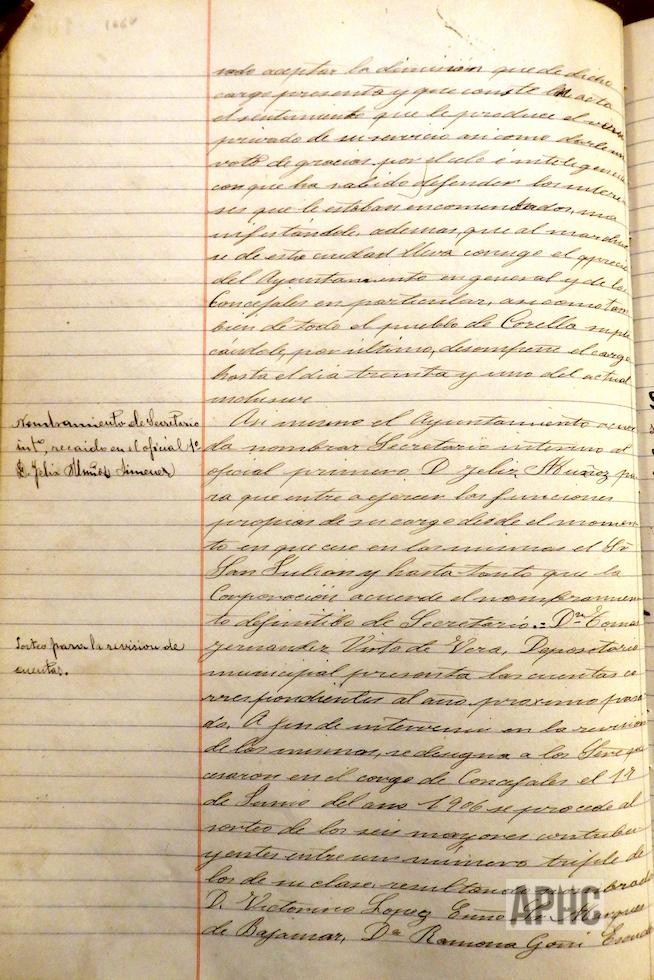 aceptar la dimision que de dicho
cargo presenta y que conste en acta
el sentimiento que le produce el verse
privado de su servicio asi como darle un
voto de gracias por el celo é inteligencia
con que ha sabido defender los intere-
ses que le estaban encomendados, ma
nifestándole ademas, que al marchar
se de esta ciudad lleva consigo el aprecio
del Ayuntamiento en general y de los
Concejales en particular, asi como tam
bien de todo el pueblo de Corella supli
cándole, por último, desempeñe el cargo
hasta el dia treinta y uno del actual
inclusive.
Nombramiento de Secretario
int.º, recaido en el oficial 1º
D. Felix Muñoz Jimenez
Asi mismo el Ayuntamiento acuer
da nombrar Secretario interino al
oficial primero D. Felix Muñoz pa
ra que entre a ejercer las funciones
propias de su cargo desde el momen
to en que cese en las mismas el Sr
San Julian y hasta tanto que la
Corporación acuerde el nombramien
to definitibo de Secretario.= Dn Tomas
Fernandez Virto de Vera, Depositario
municipal presenta las cuentas co
rrespondientes al año proximo pasa
do. A fin de intervenir en la revision
Sorteo para la revision de
cuentas.
de las mismas, se designa a los Sres que
cesaron en el cargo de Concejales el 1º
de Junio del año 1906 se procede al
sorteo de los seis mayores contribu
yentes entre un numero triple de
los de su clase, resultando
D. Victorino Lopez, Marques
de Bajamar, Dª Ramona Goñi
APHC